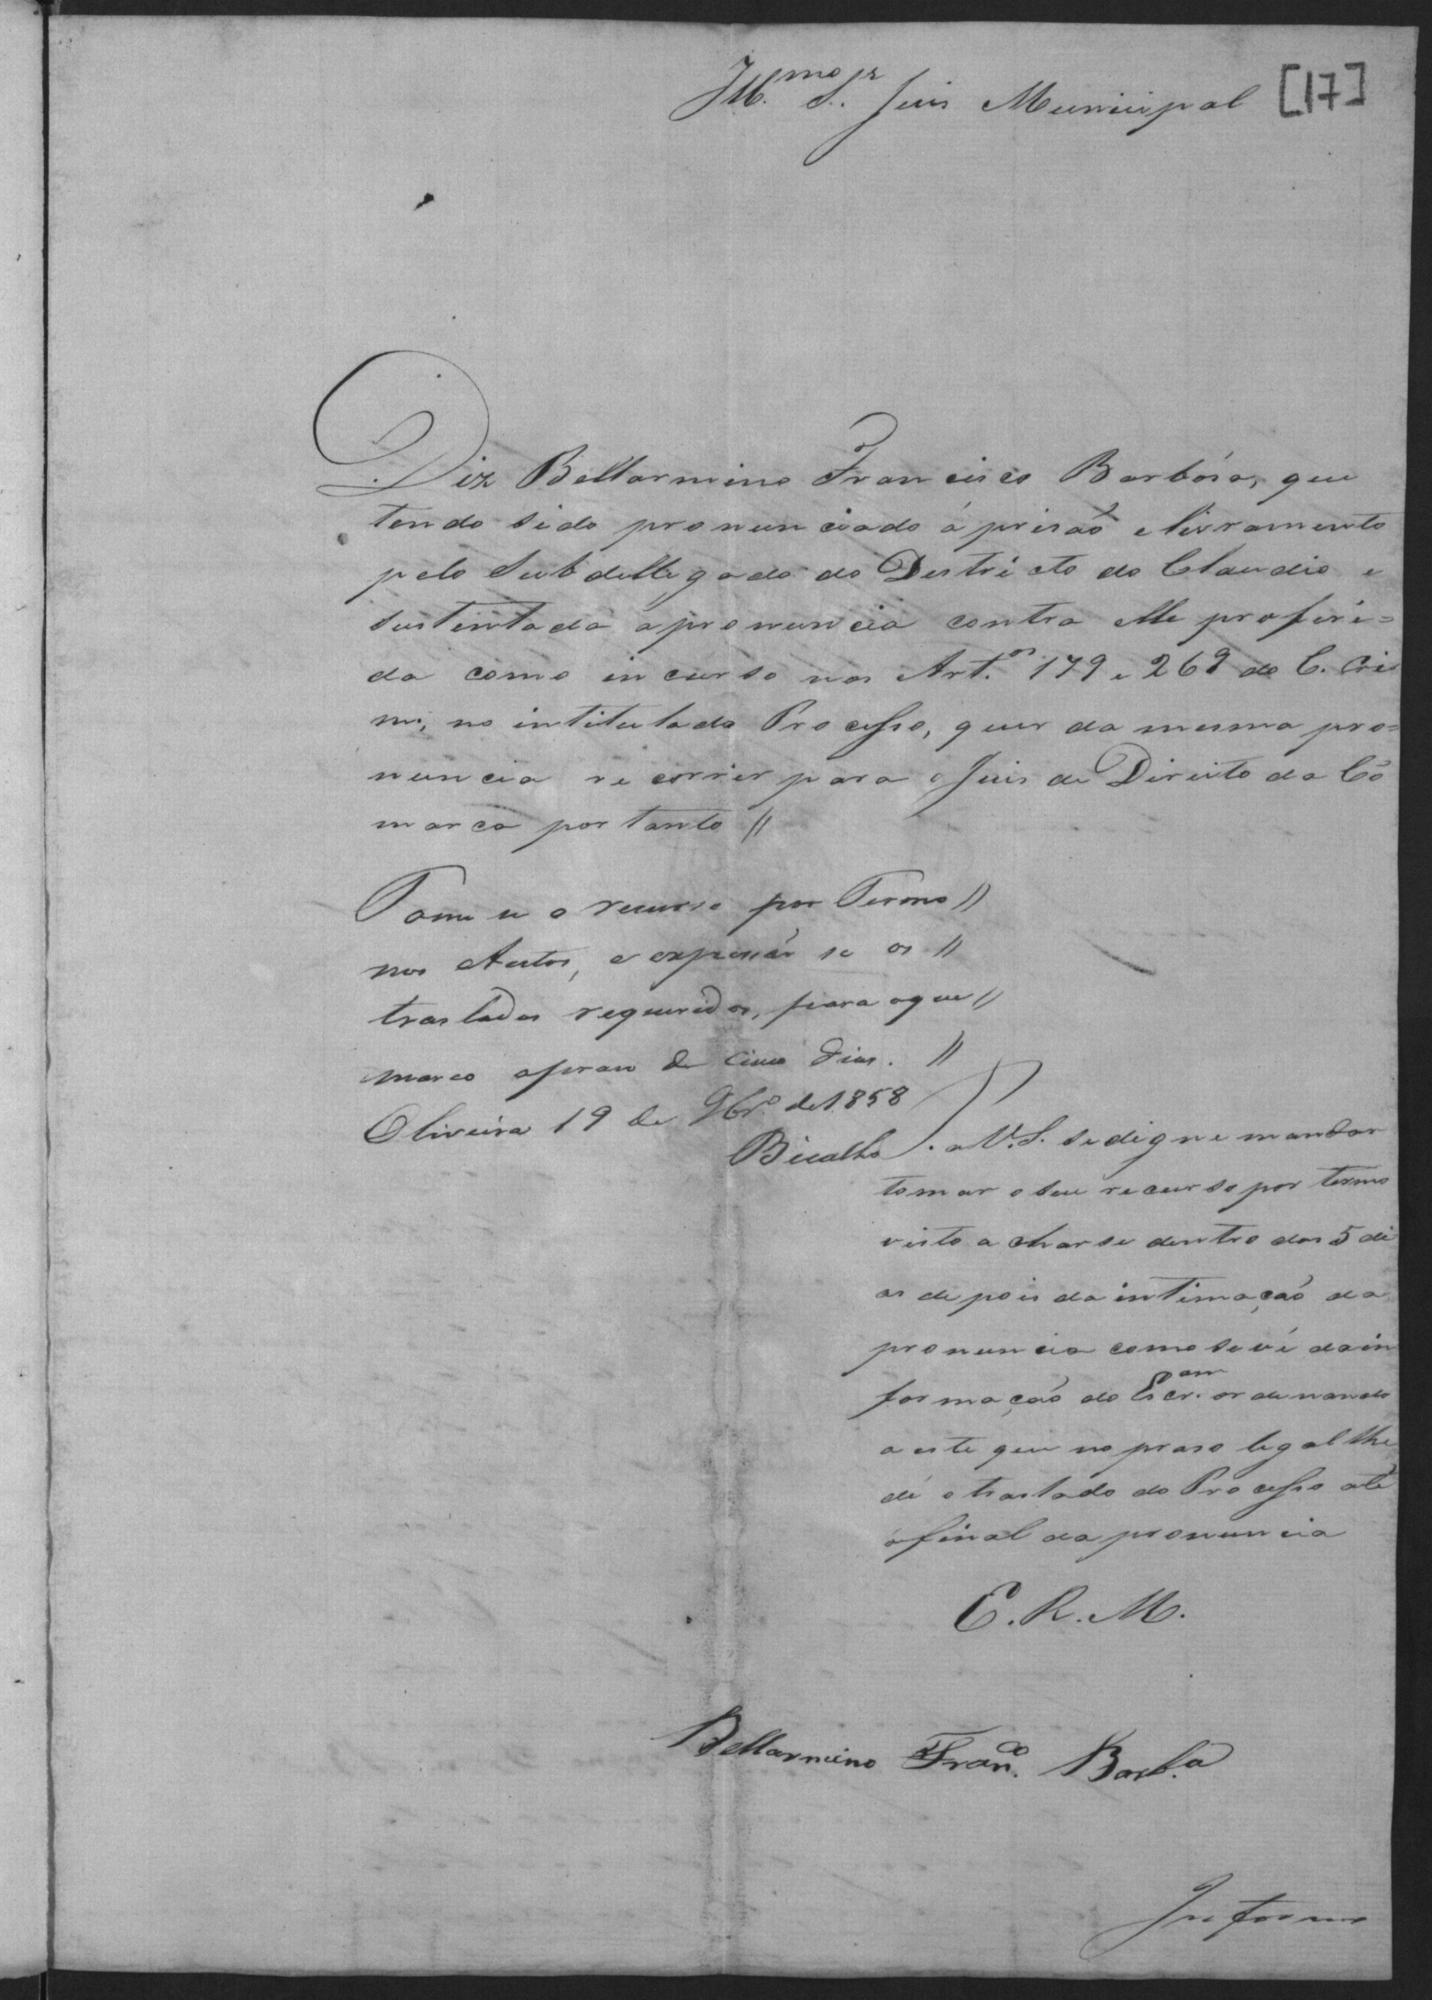 Ill.mo S.r Juis Municipal [17]
Diz Bellarmino Francisco Barbósa, que
tendo sido pronunciado á prisaõ e livramento
pelo Subdellegado do Destricto do Claudio e
sustentada a pronuncia contra elle proferi=
da como incurso nos Art.os 179 e 269 do C. Cri
m., no intitulado Processo, quer da mesma pro=
nuncia recorrer para o Juis de Direito da Co
marca por tanto //
Tome se o recurso por Termo //
nos Autos, e expessão se os //
traslados requeridos, para o que //
marco o praso de cinco dias. //
Oliveira 19 de 9br.o de 1858
Bicalho
. a V. S. se digne mandar
tomar o seu recurso por termo
visto a charse dentro dos 5 di
as depois da intimaçaõ da
pronuncia como se vê da in
formaçaõ do Escr.am ordenando
a este que no praso legal lhe
dê o traslado do Processo até
o final da pronuncia
E. R. M.
Bellarmino Fran.co Barb.a
Informe